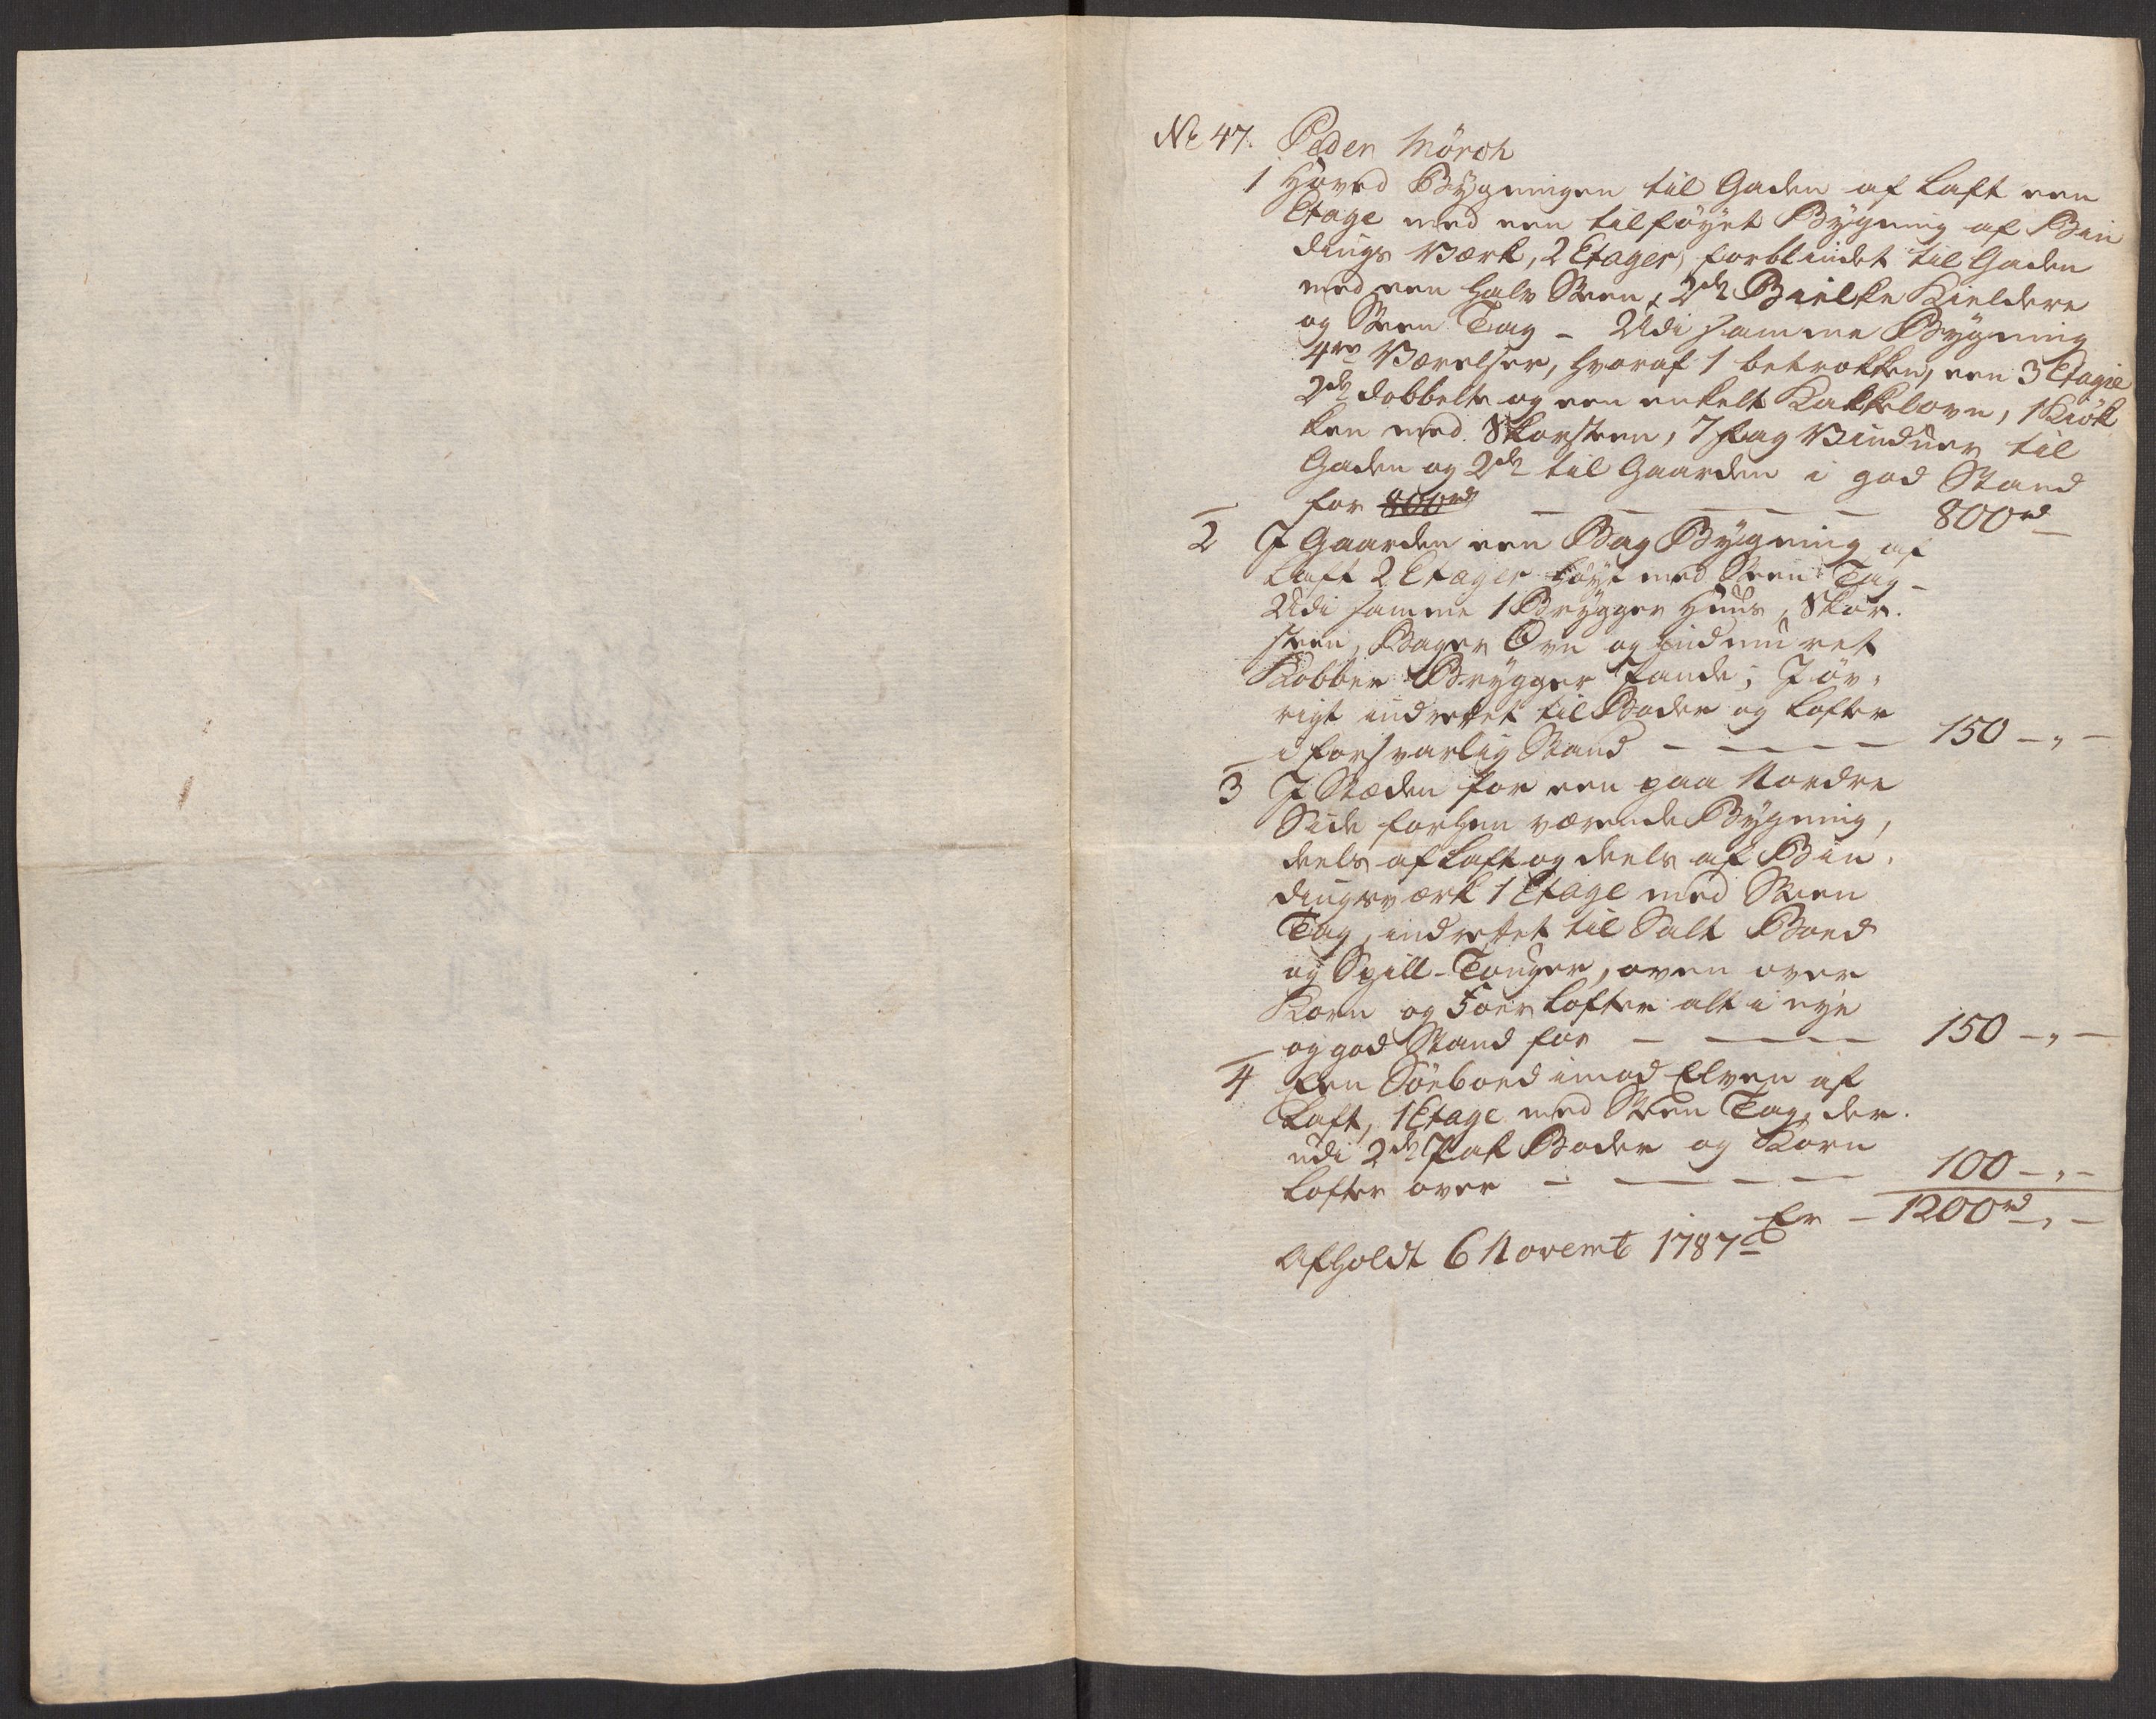 No 47. Peder Mörch
1 Hoved Bygningen til Gaden af Laft een
Etage med een tilföyet Bygning af Bin
dings Værk, 2 Etager, forblindet til Gaden
med een halv Steen, 2de Bielke Kieldere
og Steen Tag - Udi samme Bygning
4re Værelser, hvoraf 1 betrokken, een 3 Etagie
2de dobbelte og een enkelt Kakkelovn, 1 Kiök
ken med Skorsteen, 7 Fag Vinduer til
Gaden og 2de til Gaarden i god Stand
for 800rd - - - - - 800rd -
2 I Gaarden een Bag Bygning af
Laft 2 Etager höyt med Steen Tag -
Udi samme 1 Brygger Huus, Skor-
steen, Bager Ovn og indmuret
Kobber Brygger Pande; I öv-
rigt indrettet til Boder og Lofter
i forsvarlig Stand - - - - - 150 - „ -
3 I Stæden for een paa Nordre
Side forhen værende Bygning,
deels af Laft og deels af Bin-
dingsværk 1 Etage med Steen
Tag, indrettet til Salt Boed
og Spill-Touger, oven over
Korn og Foer Lofter alt i nye
og god Stand for - - - - - 150 - „ -
4 Een Söeboed imod Elven af
Laft, 1 Etage med Steen Tag, der-
udi 2de Pak Boder og Korn
Lofter over - - - - - 100 - „ -
Er - 1200rd - „ -
Afholdt 6 Novemb 1787